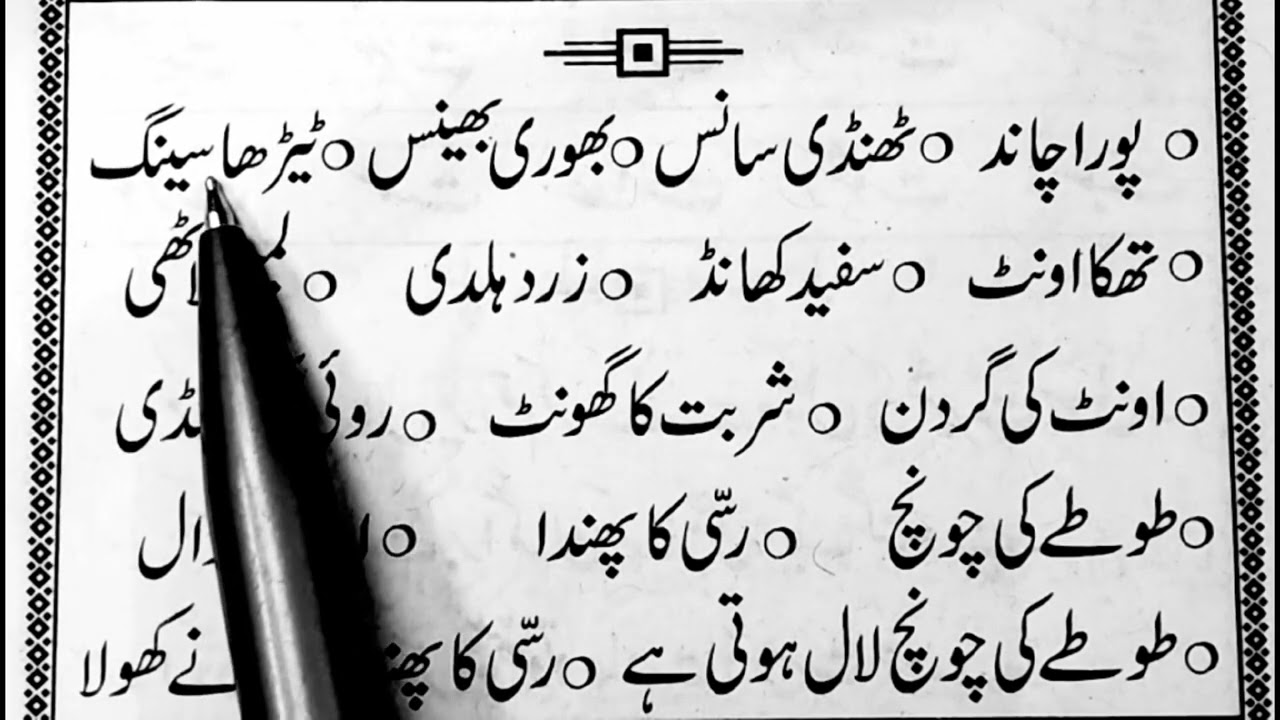 ○ پورا چاند ○ ٹھنڈی سانس ○ بھوری بھینس ○ ٹیڑھا سینگ
○ تھکا اونٹ ○ سفید کھانڈ ○ زرد ہلدی ○
○ اونٹ کی گردن ○ شربت کا گھونٹ ○ روئی
○ طوطے کی چونچ ○ رسّی کا پھندا ○
○ طوطے کی چونچ لال ہوتی ہے ○ رسّی کا نے کھولا